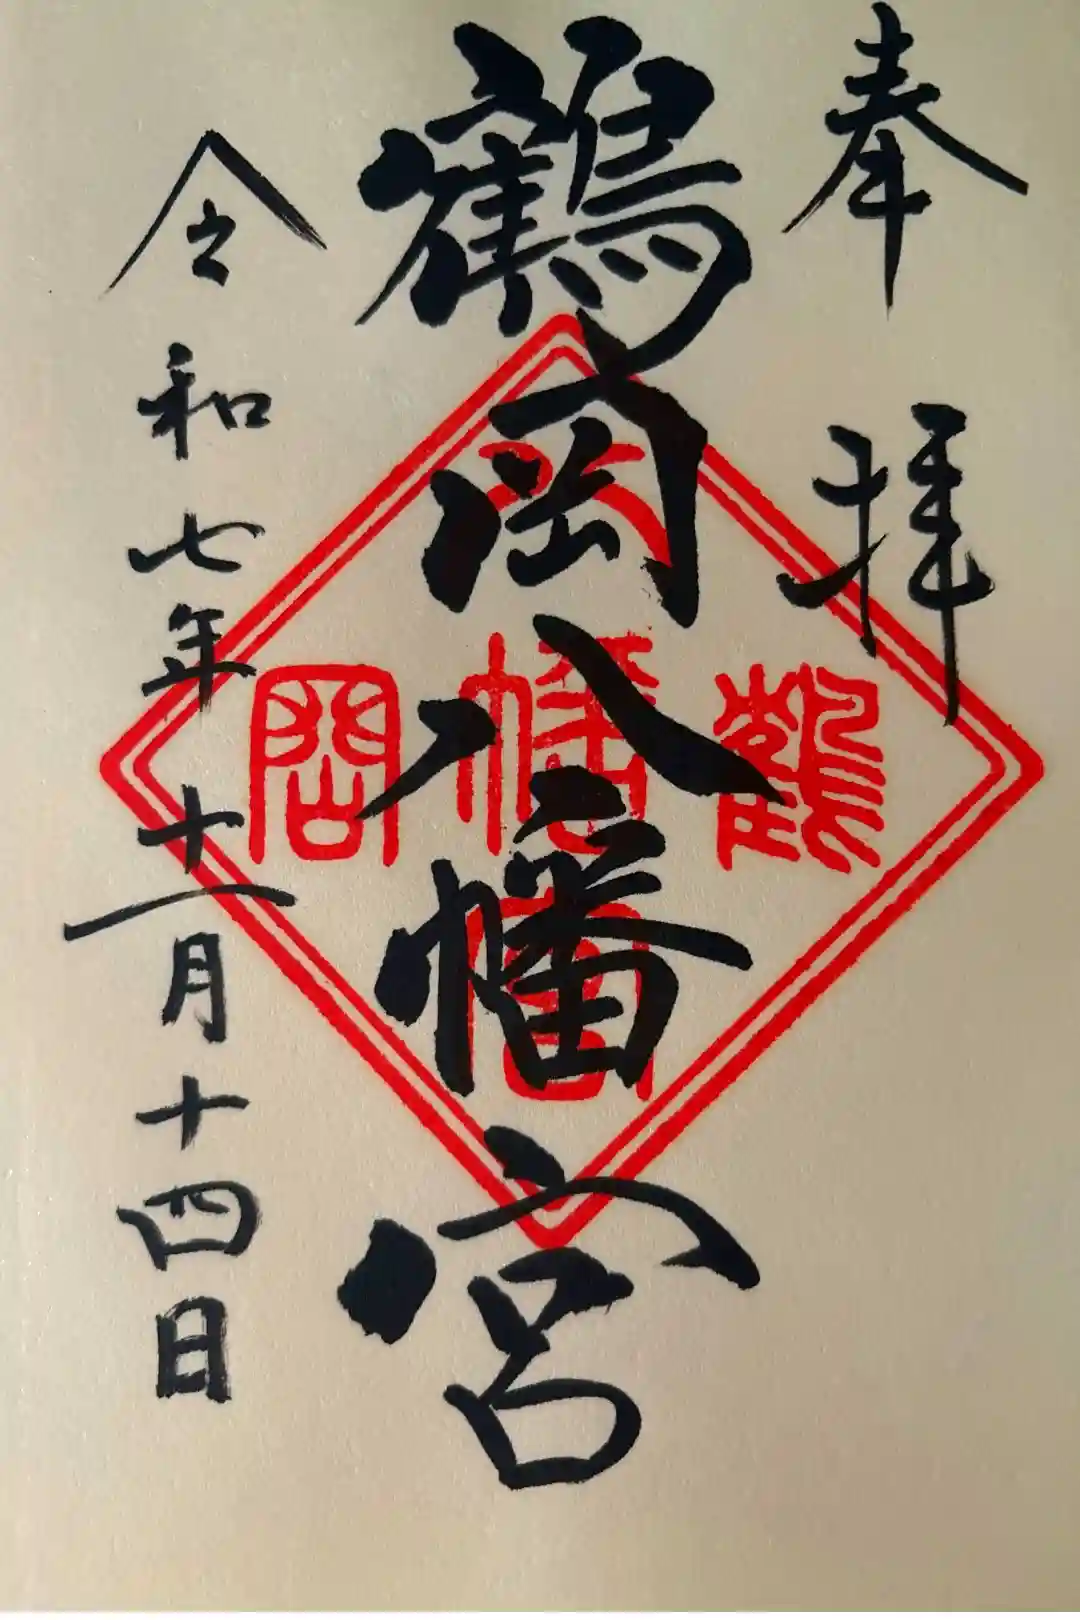 奉拝
鶴岡八幡宮
令和七年十一月十四日
鶴岡八幡宮